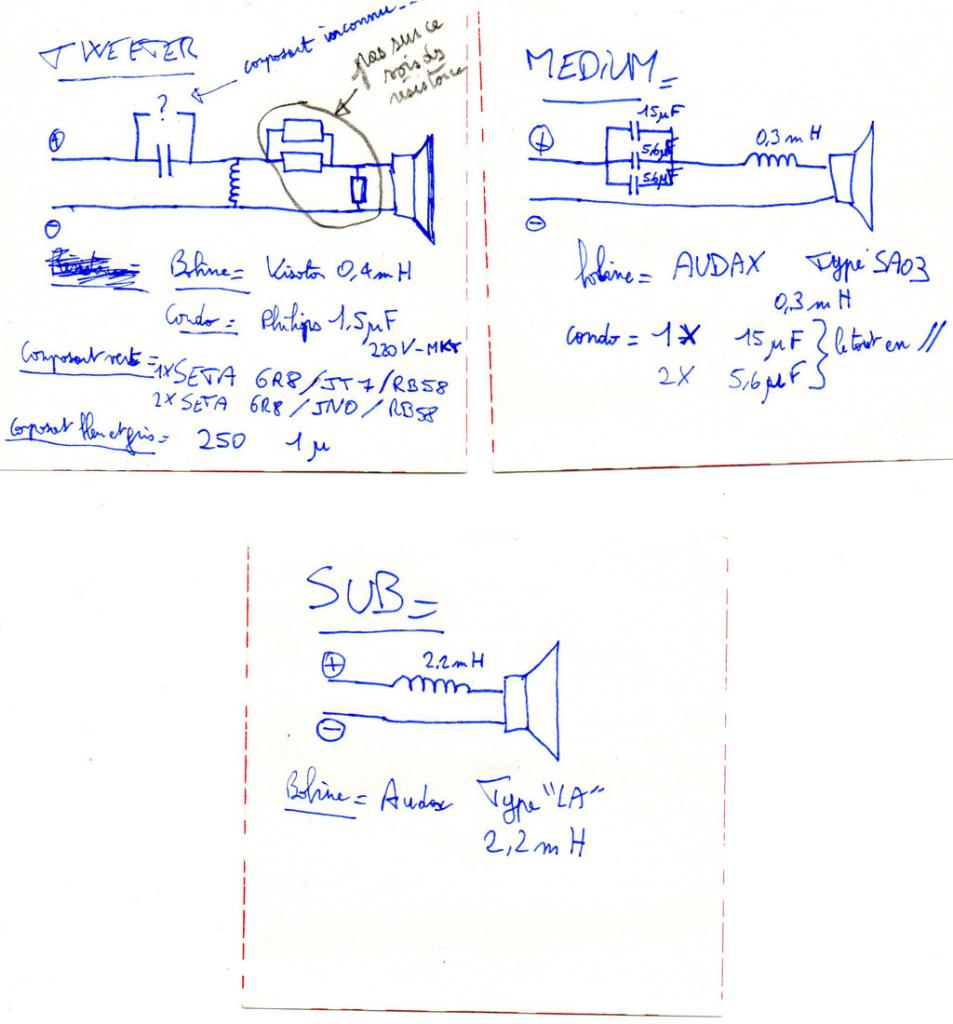 TWEETER
composant inconnu...
pas sur ce
sois des
résistance
?
+
-
Bobine = Visaton 0,4 mH
Condo = Philips 1,5µF
220V-MKT
Composant verts = 1X SETA 6R8/JT7/RB58
2X SETA 6R8/JNO/RB58
Composant bleu et gris = 250 1µ
MEDIUM =
15µF
5,6µF
5,6µF
0,3 mH
+
-
bobine = AUDAX Type SA03
0,3 mH
condo = 1X 15µF } le tout en //
2X 5,6µF }
SUB =
+
2,2mH
-
Bobine = Audax Type "LA"
2,2mH